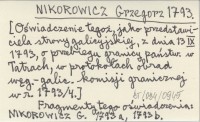 NIKOROWICZ Grzegorz 1793.
[Oświadczenie tegoż, jako przedstawi-
ciela strony galicyjskiej, z dnia 13 IX
1793, o przebiegu granicy państw. w
Tatrach, w protokołach obrad
węg.-galic. komisji granicznej
w r. 1793/4.]
Fragmenty tego oświadczenia:
NIKOROWICZ G. 1793 a, 1793 b.